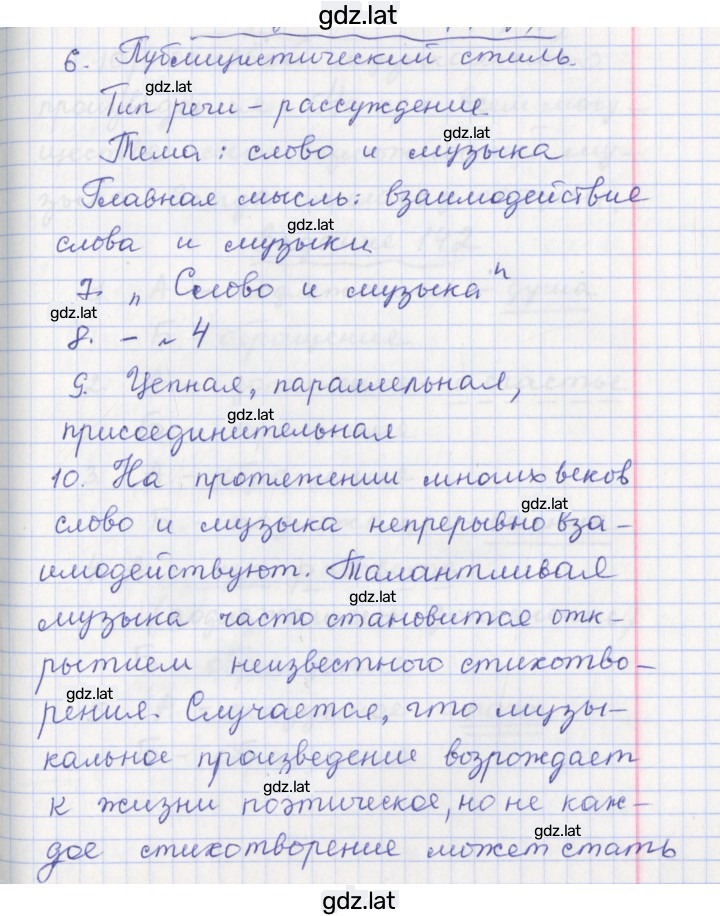 gdz.lat
6. Публицистический стиль.
gdz.lat
Тип речи – рассуждение
gdz.lat
Тема : слово и музыка
Главная мысль: взаимодействие
gdz.lat
слова и музыки
7. „ Слово и музыка"
gdz.lat
8. – ~ 4
9. Цепная, параллельная,
gdz.lat
присоединительная
10. На протяжении многих веков
gdz.lat
слово и музыка непрерывно вза-
имодействуют. Талантливая
gdz.lat
музыка часто становится отк-
рытием неизвестного стихотво-
gdz.lat
рения. Случается, что музы-
кальное произведение возрождает
gdz.lat
к жизни поэтическое, но не каж-
gdz.lat
дое стихотворение может стать
gdz.lat